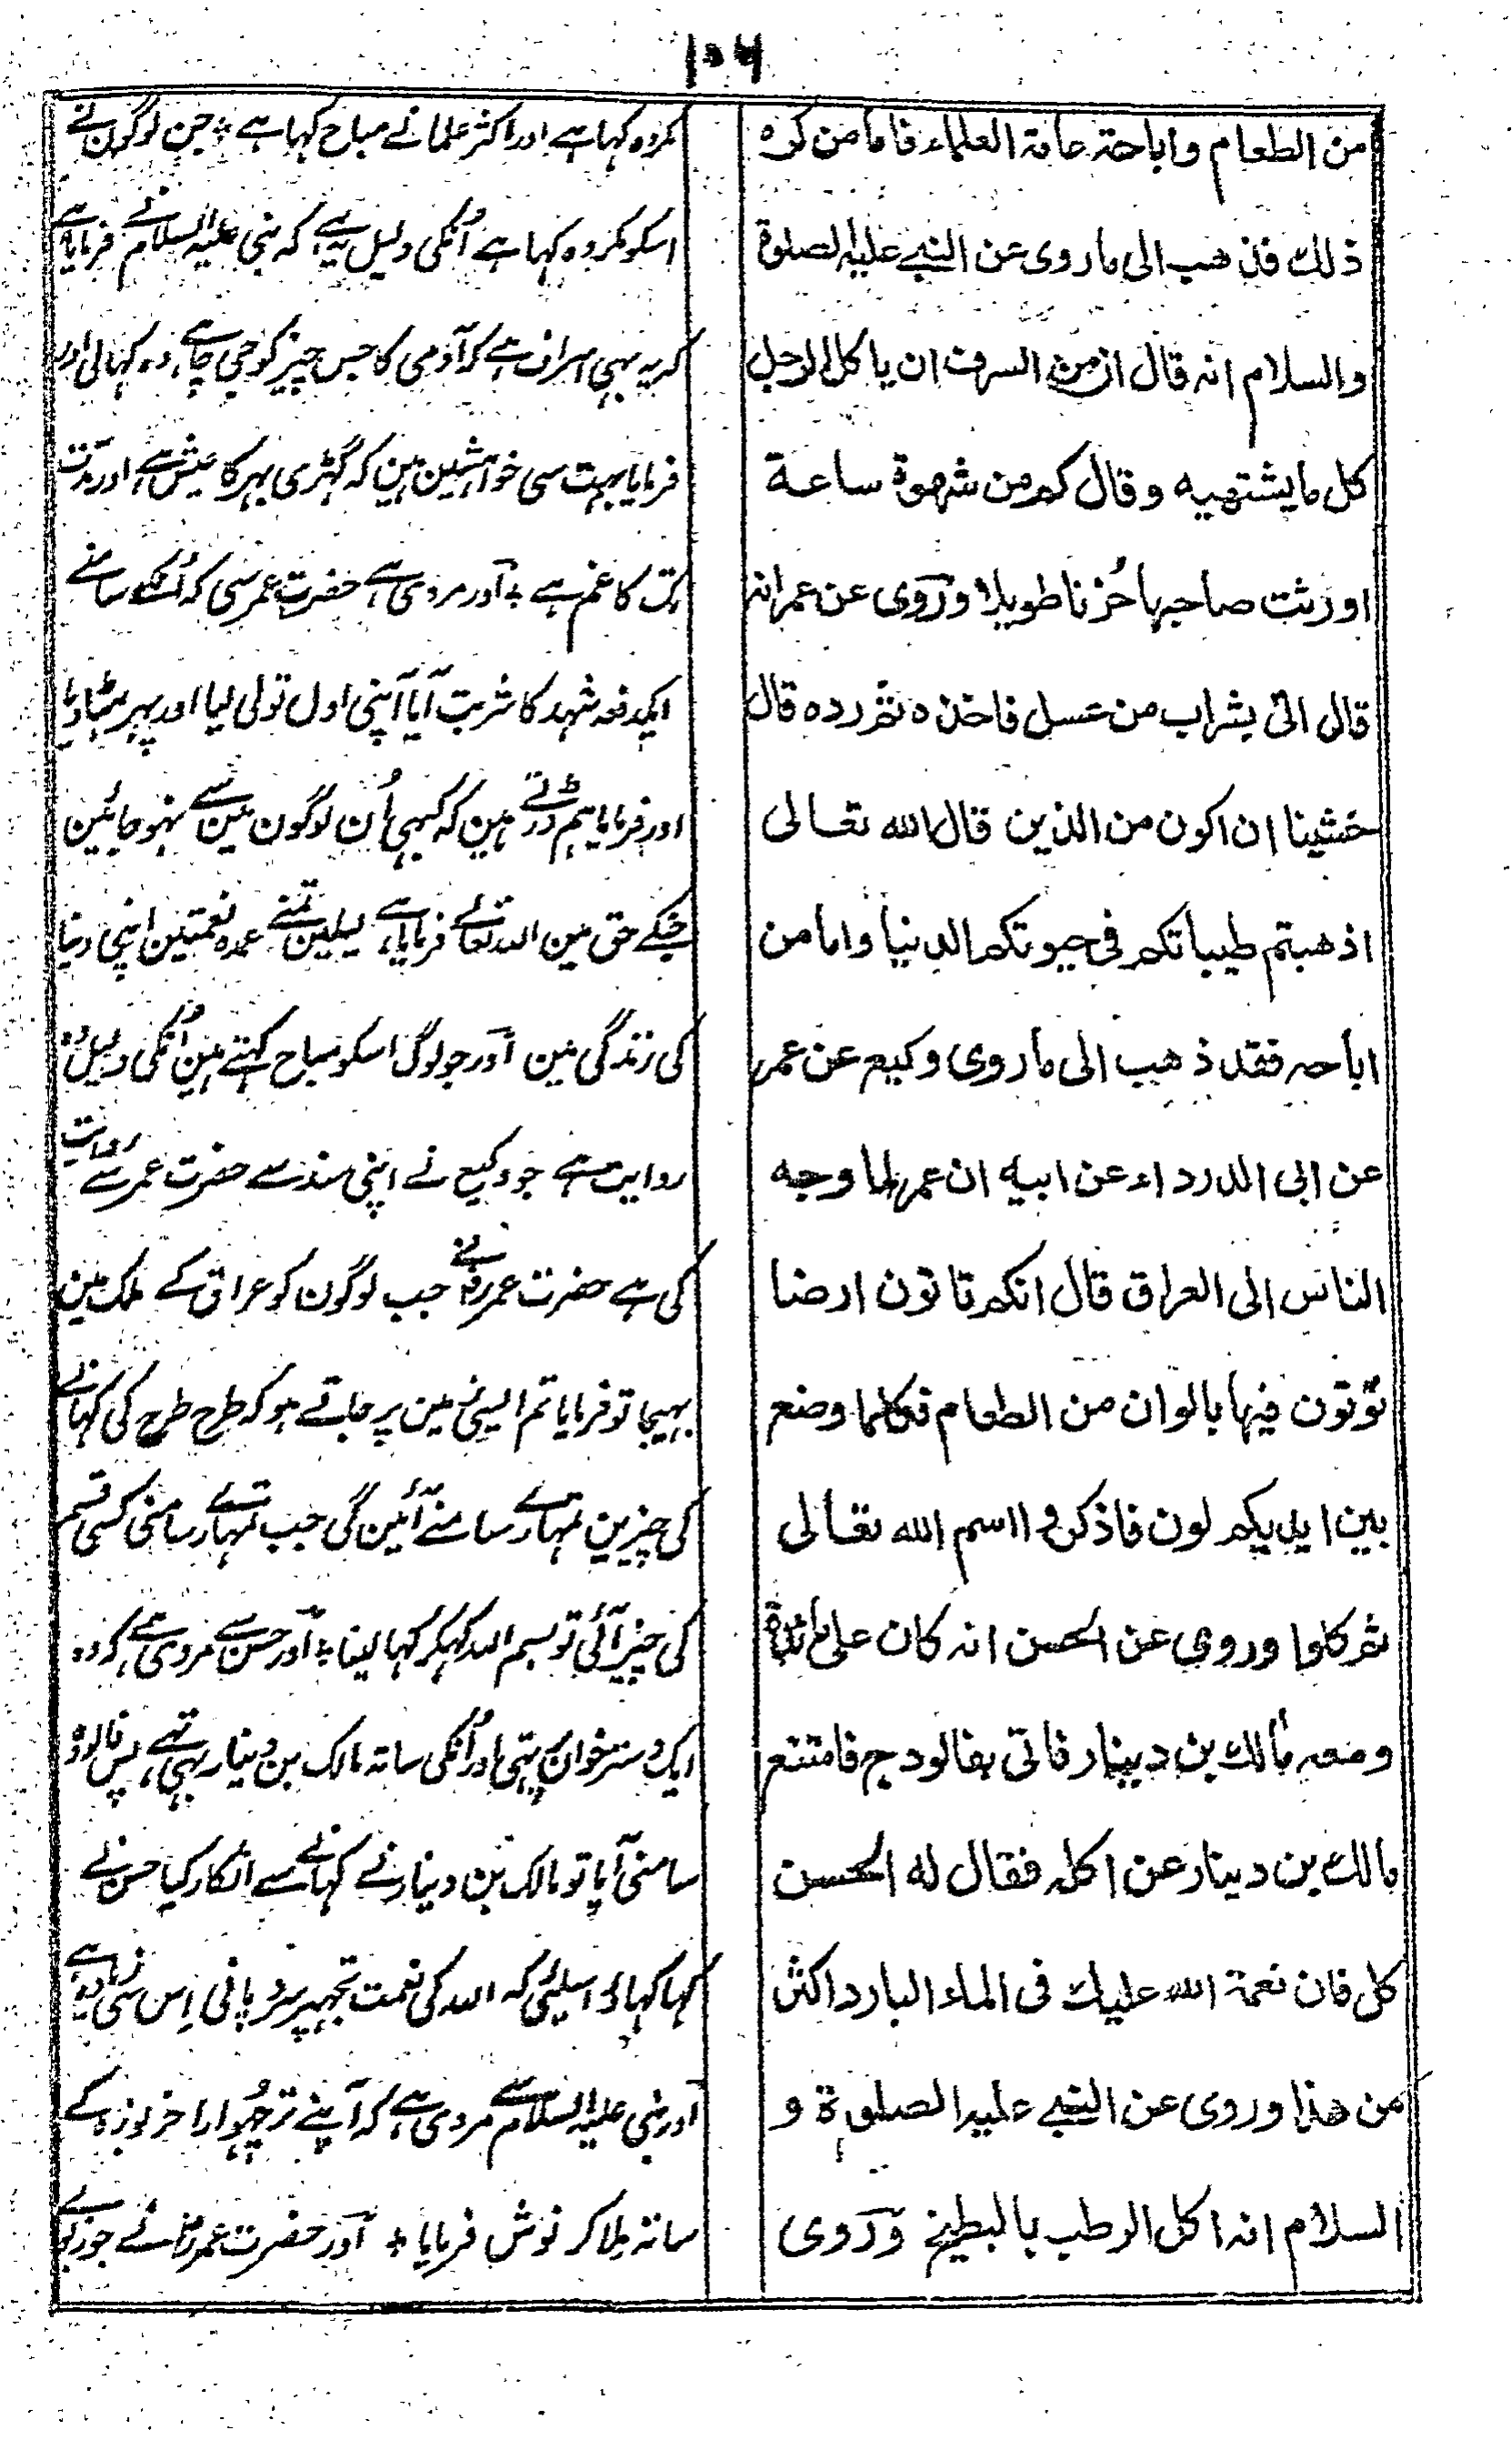 ١٥٦
من الطعام واباحتہ عامة العلماء فاما من كره
ذلك فذهب الى ماروى عن النبے عليہ الصلوة
والسلام انہ قال ان من السرف ان ياكل الرجل
كل مايشتهيه وقال كم من شهوة ساعة
اورثت صاحبها حُزنا طويلا وروى عن عمر انہ
قال اتى بشراب من عسل فاخذه ثم رده قال
خشينا ان اكون من الذين قال الله تعالى
اذهبتم طيباتكم فى حيوتكم الدنيا واما من
اباحہ فقد ذهب الى ماروى وكيع عن عمر
عن ابى الدرداء عن ابيه ان عمر لما وجه
الناس الى العراق قال انكم تاتون ارضا
تؤتون فيها بالوان من الطعام فكلما وضع
بين ايديكم لون فاذكروا اسم الله تعالى
ثم كلوا وروى عن الحسن انہ كان على مائدة
ومعہ مالك بن دينار فاتى بفالودج فامتنع
مالك بن دينار عن اكلہ فقال له الحسن
كل فان نعمة الله عليك فى الماء البارد اكثر
من هذا وروى عن النبے عليہ الصلوة و
السلام انہ اكل الرطب بالبطيخ وروى
مکروہ کہا ہے اور اکثر علما نے مباح کہا ہے ؞ جن لوگون نے
اسکو مکروہ کہا ہے اُنکی دلیل یہ ہے کہ نبی علیہ السلام نے فرمایا ہے
کہ یہ بہی اسراف ہے کہ آدمی کا جس چیز کو جی چاہے وہ کہالی اور
فرمایا بہت سی خواہشین ہین کہ گہڑی بہر کا عیش ہے اور مدت
تک کا غم ہے ؞ اور مروی ہے حضرت عمر سی کہ اُنکے سامنے
ایکدفعہ شہد کا شربت آیا آپنی اول تولی لیا اور پہر ہٹا دیا
اور فرمایا ہم ڈرتے ہین کہ کبہی اُن لوگون مین سے نہو جائین
جنکے حق مین اللہ تعالے فرماتا ہے لیلین تمنے عمدہ نعمتین اپنی دنیا
کی زندگی مین اور جو لوگ اسکو مباح کہتے ہین اُنکی دلیل وہ
روایت ہے جو وکیع نے اپنی سند سے حضرت عمر سے روایت
کی ہے حضرت عمر رضؓ نے جب لوگون کو عراق کے ملک مین
بہیجا تو فرمایا تم ایسی زمین پر جاتے ہو کہ طرح طرح کی کہانے
کی چیزین تمہارے سامنے آئین گی جب تمہارے سامنی کسی قسم
کی چیز آئی تو بسم اللہ کہکر کہا لینا ؞ اور حسن سے مروی ہے کہ وہ
ایک دسترخوان پر تہی اور اُنکی ساتہ مالک بن دینار بہی تہے پس فالودہ
سامنی آیا تو مالک بن دینار نے کہانے سے انکار کیا حسن نے
کہا کہاؤ اسلیئی کہ اللہ کی نعمت تجہپر سرد پانی مین اِس سی زیادہ ہے
اور نبی علیہ السلام سے مروی ہے کہ آپنے تر چہوارا خربوزہ کے
ساتہ ملا کر نوش فرمایا ؞ اور حضرت عمر رضؓ نے جو